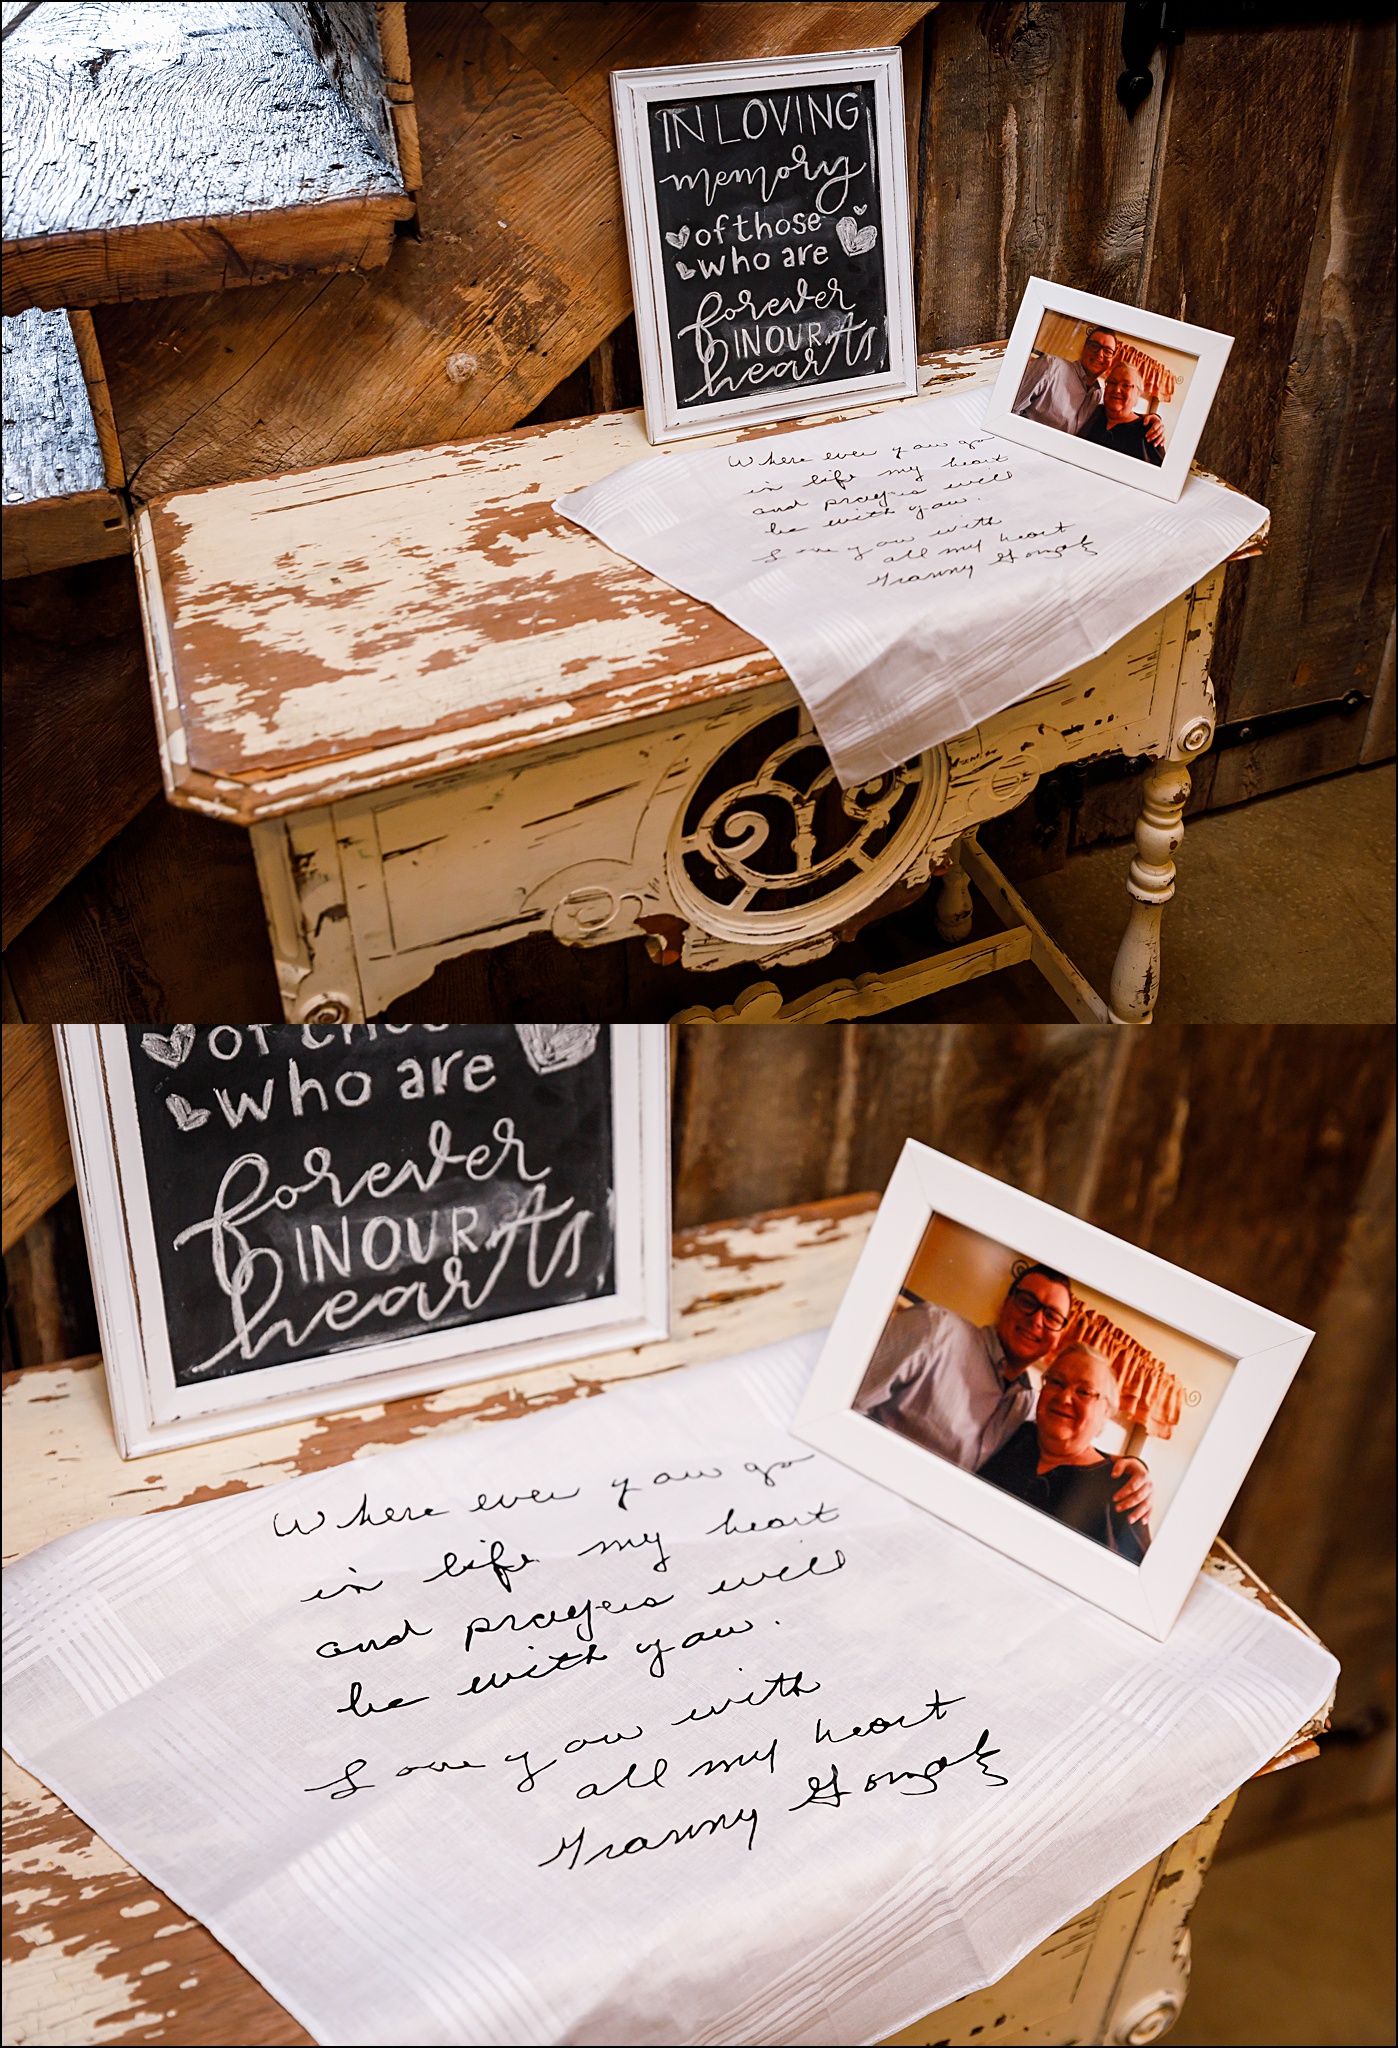 IN LOVING
memory
of those
who are
forever
IN OUR
hearts
Where ever you go
in life my heart
and prayers will
be with you.
Love you with
all my heart
Granny Gonzalz
who are
forever
IN OUR
hearts
Where ever you go
in life my heart
and prayers will
be with you.
Love you with
all my heart
Granny Gonzalz